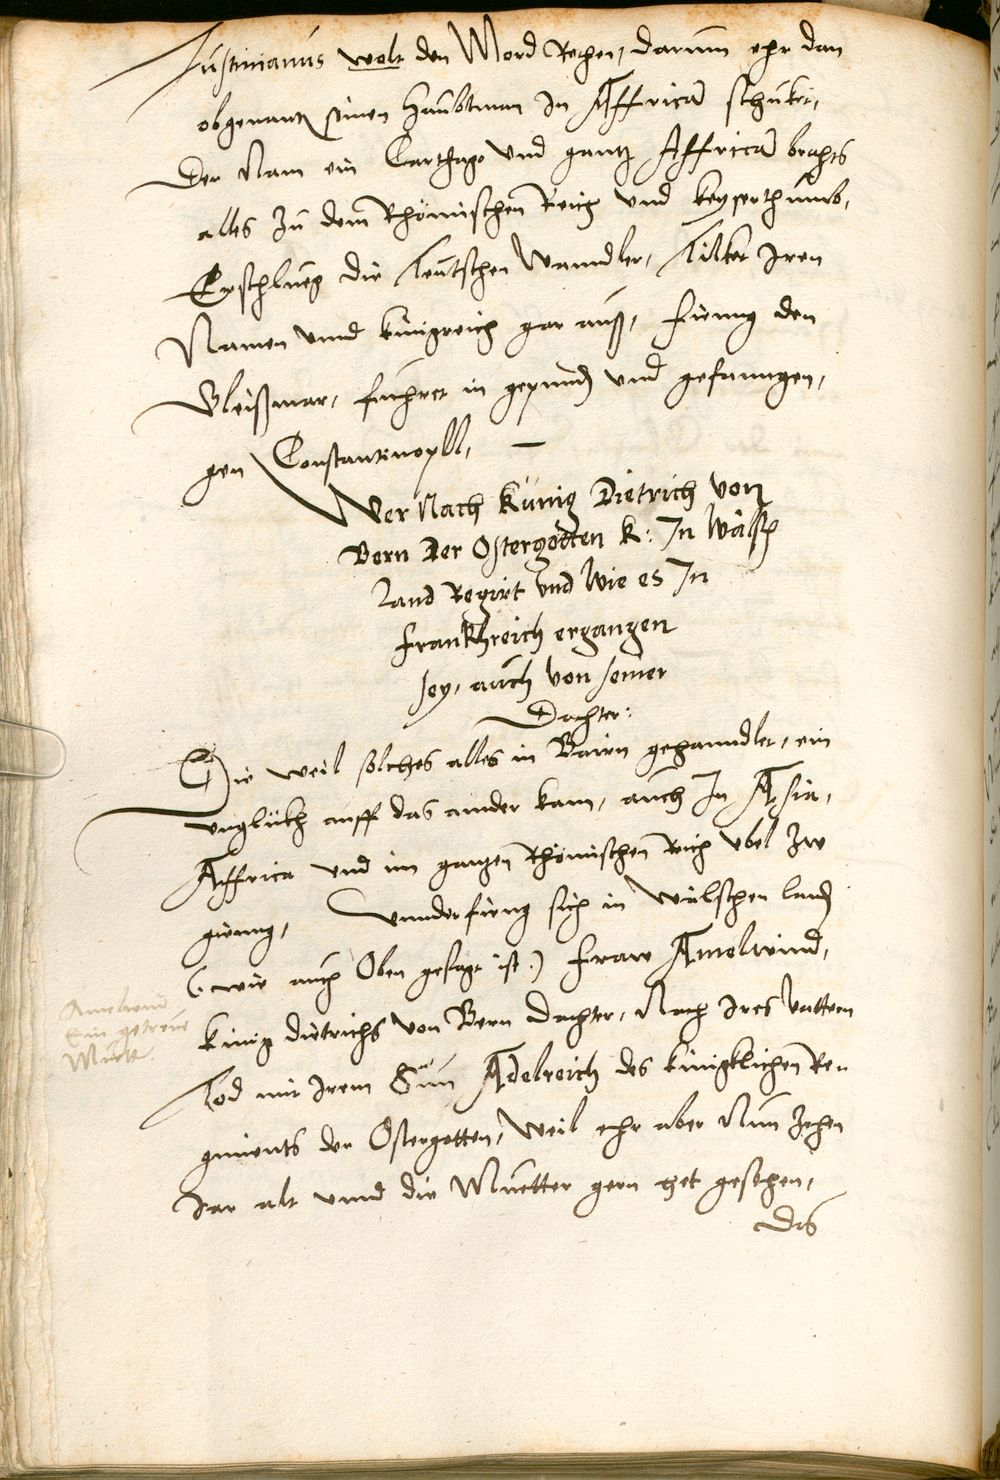 Justinianus wolt den Mord Rechen, darumb ehr dan
obgenantz seinen Haubtman In Affrica schicket,
Der Nam ein Carthago Vnd gantz Affrica brachts
alles Zu dem Rhömischen Reich vnd keyserthumb,
Erschlueg die Teutschen Wanndler, Tilket Iren
Namen vnnd künigreich gar auß, fienng den
Gleißmar, fuhret in gepund vnd gefanngen,
gen Constantinopll,
Wer Nach Künig Dietrich von
Bern Der Ostergotten K: In Wälsch
Land Regirt vnd Wie es In
Frankhreich ergangen
sey, auch von seiner
Dochter:
Die weil solches alles in Bairn gehanndlet, ein
vnglükh auff das ander kam, auch In Asia,
Affrica vnd im ganzen Rhömischen Reich vbel Zw
gienng, Vnnderfieng sich in Wälschen land
(: wie auch Oben gesagt ist :) Fraw Amelwind,
künig dietrichs von Bern dochter, Nach Ires Vattern
Tod mit Irem Sun Adelreich des künigklichen Re-
giments der Ostergotten, Weil ehr aber Nun Zehen
Jar alt vnnd die Muetter gern het gesehen,
das
Amelwind
Ein getreue
Muett.